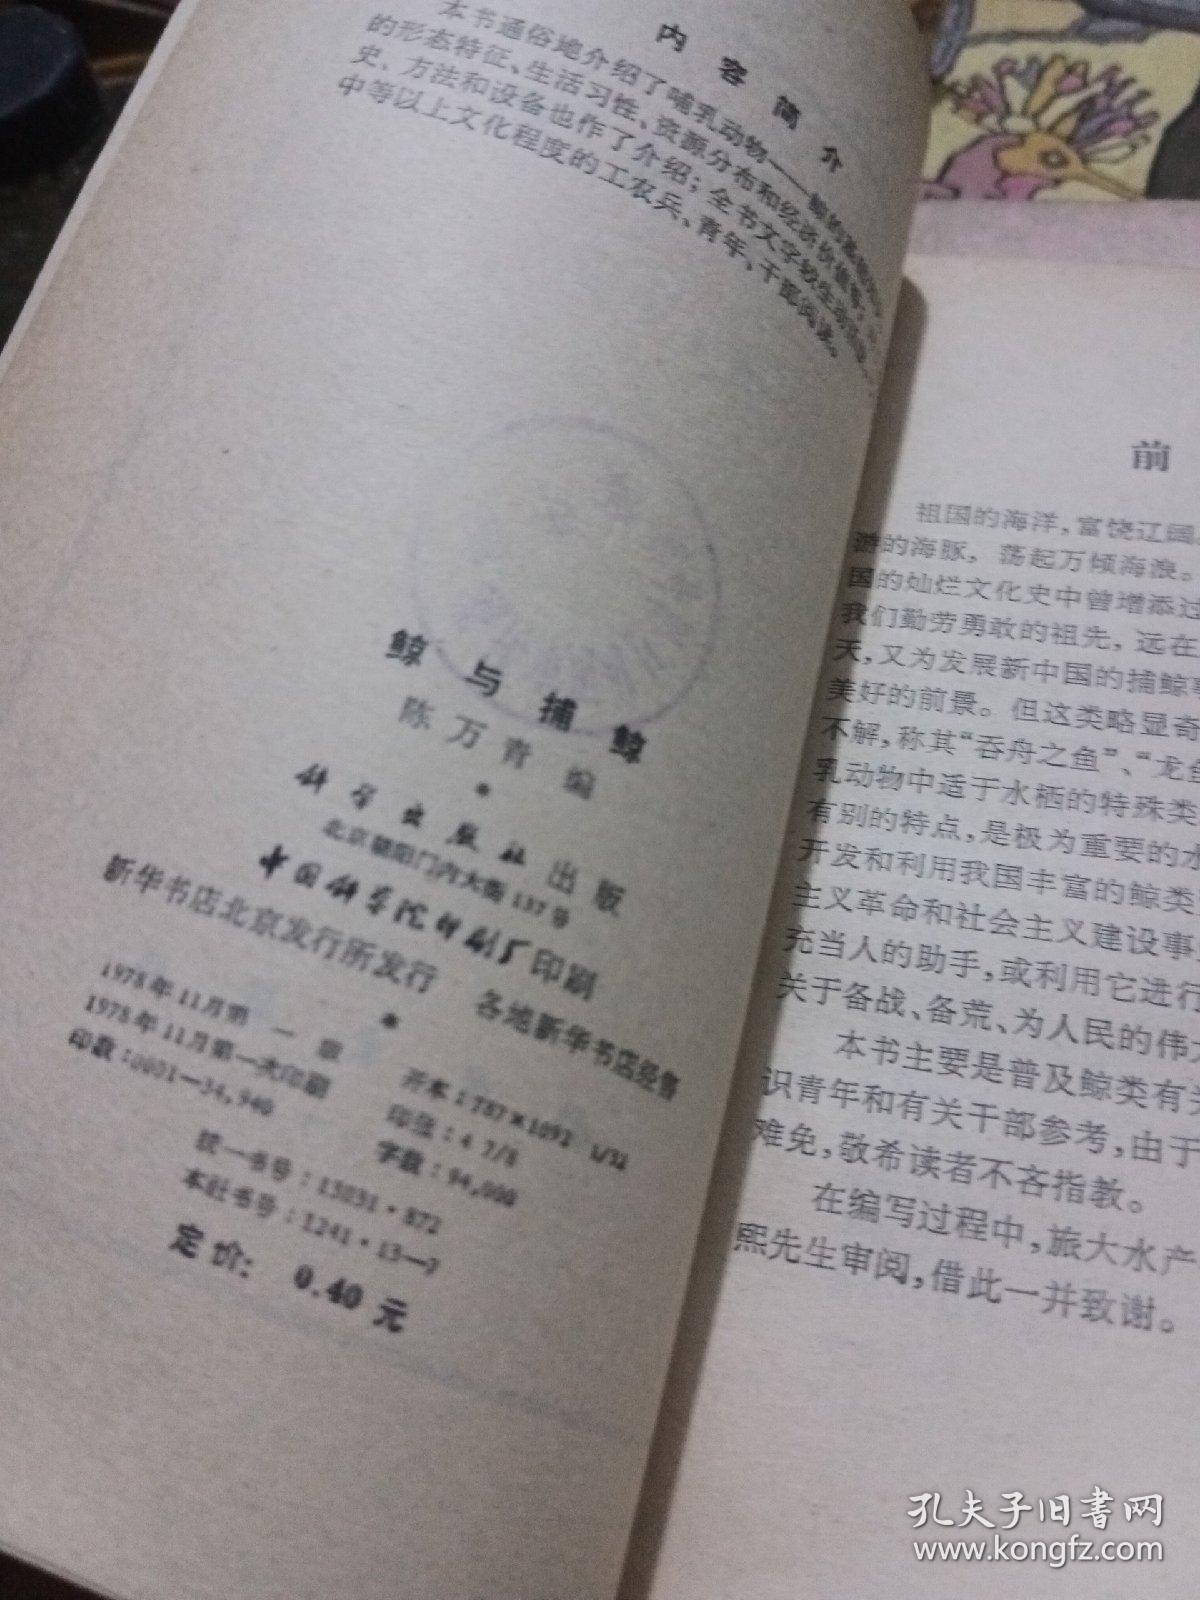 内容简介
本书通俗地介绍了哺乳动物——鲸的
的形态特征、生活习性、资源分布和经济价值等；
史、方法和设备也作了介绍；全书文字较生动
中等以上文化程度的工农兵、青年、干部阅读。
鲸与捕鲸
陈万青 编
*
科学出版社出版
北京朝阳门内大街 137 号
中国科学院印刷厂印刷
新华书店北京发行所发行 各地新华书店经售
*
1978年11月第一版 开本：787×1092 1/32
1978年11月第一次印刷 印张：4 7/8
印数：0001—34,940 字数：94,000
统一书号：13031·872
本社书号：1241·13—7
定价： 0.40 元
前
祖国的海洋，富饶辽阔
游的海豚，荡起万倾海浪。
国的灿烂文化史中曾增添过
我们勤劳勇敢的祖先，远在
天，又为发展新中国的捕鲸事
美好的前景。但这类略显奇
不解，称其“吞舟之鱼”、“龙鱼
乳动物中适于水栖的特殊类
有别的特点，是极为重要的水
开发和利用我国丰富的鲸类
主义革命和社会主义建设事
充当人的助手，或利用它进行
关于备战、备荒、为人民的伟大
本书主要是普及鲸类有关
识青年和有关干部参考，由于
难免，敬希读者不吝指教。
在编写过程中，旅大水产
熙先生审阅，借此一并致谢。
孔夫子旧书网
www.kongfz.com